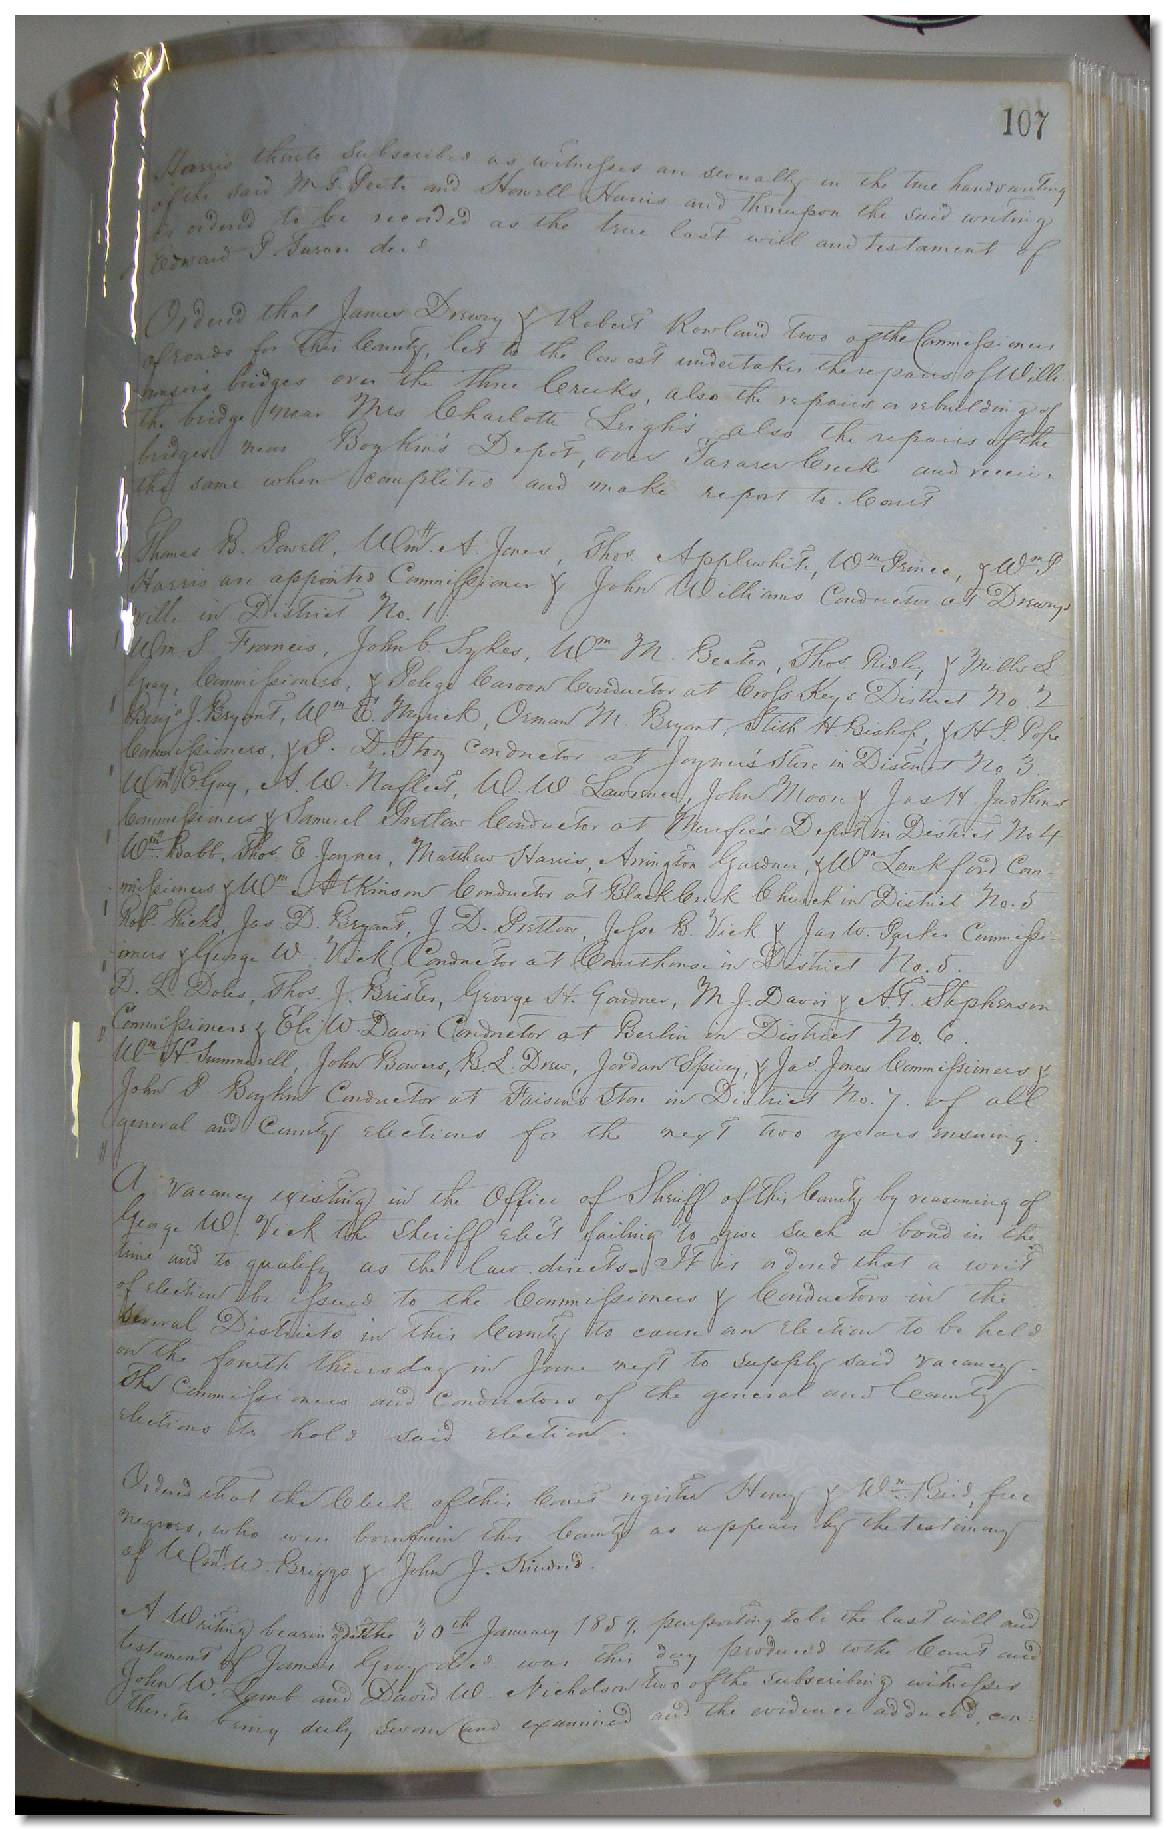 107
Harris thereto subscribed as witnesses are severally in the true handwriting
of the said M. T. Peete and Howell Harris and thereupon the said writing
is ordered to be recorded as the true last will and testament of
Edward P. Turner decd
Ordered that James Drewry & Robert Rowland two of the Commissioners
of roads for this County, let to the lowest undertaker the repairs of Willi
amson's bridges over the three Creeks, also the repairs or rebuilding of
the bridge near Mrs Charlotte Leigh's also the repairs of the
bridges near Boykin's Depot, over Tararer Creek and receive
the same when completed and make report to Court
Thomas B. Powell, Wm. A. Jones, Thos. Applewhite, Wm Prince, & Wm P
Harris are appointed Commissioner & John Williams Conductor at Drewrys
ville in District No. 1.
Wm S. Francis, John C. Sykes, Wm M. Beaton, Thos. Ridley, & Mills S
Gray, Commissioners, & Conductor at Cross Keys District No. 2
Benj. J. Bryant, Wm E. Myrick, Orman M. Bryant, Stith H Bishop, & H. P. Pope
Commissioners, & P. D. Conductor at Joyner's Store in District No 3.
Wm E Gay, A. W. Norfleet, W. W Lawrence, John Moore & Jas H Judkins
Commissioners & Samuel Partlow Conductor at Murfee's Depot in District No 4
Wm Babb, Thos. E. Joyner, Matthew Harris, Arrington Gardner, & Wm Lankford Com-
missioners & Wm Atkinson Conductor at Black Creek Church in District No. 5
Rob. Ricks, Jas D. Bryant, J. D. Pretlow, Jesse B. Vick & Jas W. Parker Commissi-
oners & George W. Vick Conductor at Courthouse in District No. 5.
D. L. Doles, Thos. J. Brister, George H. Gardner, M. J. Davis & A. T. Stephenson
Commissioners & Eli W. Davis Conductor at Berlin in District No. 6.
Wm H Summerell, John Bowers, B. L. Drew, Jordan Spivey, & Jas Jones Commissioners &
John P Boykin Conductor at Faison's Store in District No. 7. of all
general and County elections for the next two years ensuing.
A vacancy existing in the Office of Sheriff of this County by reasoning of
George W. Vick the Sheriff elect failing to give such a bond in the
time and to qualify as the law directs. It is ordered that a writ
of election be issued to the Commissioners & Conductors in the
several Districts in this County to cause an election to be held
on the fourth thursday in June next to supply said vacancy.
The Commissioners and Conductors of the general and County
elections to hold said election.
Ordered that the Clerk of this Court register Henry & Wm Reid, free
negroes, who were born in this County as appears by the testimony
of Wm. W. Briggs & John J. Kindred.
A Writing bearing date the 30th January 1859, purporting to be the last will and
testament of James Gray decd was this day produced to the Court and
John W. Lamb and David W. Nicholson two of the subscribing witnesses
thereto being duly sworn and examined and the evidence adduced, con-